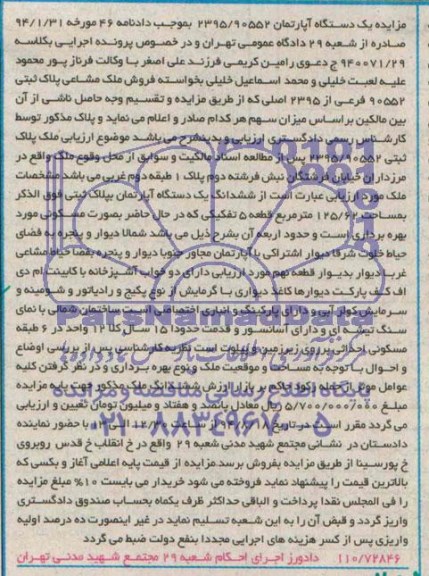 مزایده یک دستگاه آپارتمان ۲۳۹۵/۹۰۵۵۲ بموجب دادنامه ۴۶ مورخه ۹۴/۱/۳۱
صادره از شعبه ۲۹ دادگاه عمومی تهران و در خصوص پرونده اجرایی بکلاسه
۹۴۰۰۷۱/۲۹ ج دعوی رامین کریمی فرزند علی اصغر با وکالت فرناز پور محمود
علیه لعبت خلیلی و محمد اسماعیل خلیلی بخواسته فروش ملک مشاعی پلاک ثبتی
۹۰۵۵۲ فرعی از ۲۳۹۵ اصلی که از طریق مزایده و تقسیم وجه حاصل ناشی از آن
بین مالکین بر اساس میزان سهم هر کدام صادر و اعلام می نماید و پلاک مذکور توسط
کارشناس رسمی دادگستری ارزیابی و بدینشرح می باشد موضوع ارزیابی ملک پلاک
ثبتی ۲۳۹۵/۹۰۵۵۲ پس از مطالعه اسناد مالکیت و سوابق از محل وقوع ملک واقع در
مرزداران خیابان فرشتگان نبش فرشته دوم پلاک ۱ طبقه دوم غربی می باشد مشخصات
ملک مورد ارزیابی عبارت است از ششدانگ یک دستگاه آپارتمان بپلاک ثبتی فوق الذکر
بمساحت ۱۲۵/۶۲ مترمربع قطعه ۵ تفکیکی که در حال حاضر بصورت مسکونی مورد
بهره برداری است و حدود اربعه آن بشرح ذیل می باشد شمالا دیوار و پنجره به فضای
حیاط خلوت شرقا دیوار اشتراکی با آپارتمان مجاور جنوبا دیوار و پنجره بفضا حیاط مشاعی
غربا دیوار بدیوار قطعه نهم مورد ارزیابی دارای دو خواب آشپزخانه با کابینت ام دی
اف کف پارکت دیوارها کاغذ دیواری با گرمایش از نوع پکیج و رادیاتور و شومینه و
سرمایش کولر آبی و دارای پارکینگ و انباری اختصاصی است ساختمان شمالی با نمای
سنگ تیشه ای و دارای آسانسور و قدمت حدودا ۱۵ سال کلا ۱۲ واحد در ۶ طبقه
مسکونی احداثی بر روی زیرزمین و پیلوت است نظریه کارشناسی پس از بررسی اوضاع
و احوال با توجه به مساحت و موقعیت ملک و نوع بهره برداری و در نظر گرفتن کلیه
عوامل موثر از جمله رکود حاکم بر بازار ارزش ششدانگ ملک مذکور جهت پایه مزایده
مبلغ ۵/۷۰۰/۰۰۰/۰۰۰ ریال معادل پانصد و هفتاد میلیون تومان تعیین و ارزیابی
می گردد مقرر است در تاریخ از ساعت الی با حضور نماینده
دادستان در نشانی مجتمع شهید مدنی شعبه ۲۹ واقع در خ انقلاب خ قدس روبروی
خ پورسینا از طریق مزایده بفروش برسد مزایده از قیمت پایه اعلامی آغاز و بکسی که
بالاترین قیمت را پیشنهاد نماید فروخته می شود خریدار می بایست ۱۰% مبلغ مزایده
را فی المجلس نقدا پرداخت و الباقی حداکثر ظرف یکماه بحساب صندوق دادگستری
واریز گردد و قبض آن را به این شعبه تسلیم نماید در غیر اینصورت ده درصد اولیه
واریزی پس از کسر هزینه های اجرایی مجددا بنفع دولت ضبط می گردد
۱۱۰/۷۲۸۴۶ دادورز اجرای احکام شعبه ۲۹ مجتمع شهید مدنی تهران